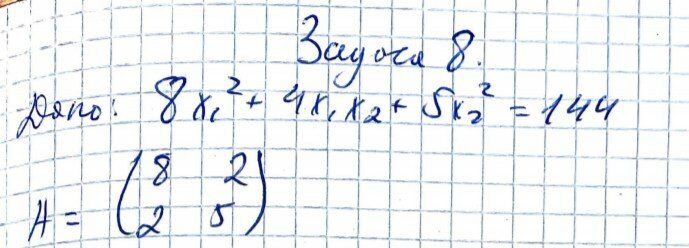 Задача 8.
Дано: 8x₁² + 4x₁x₂ + 5x₂² = 144
A = (8 2
2 5)